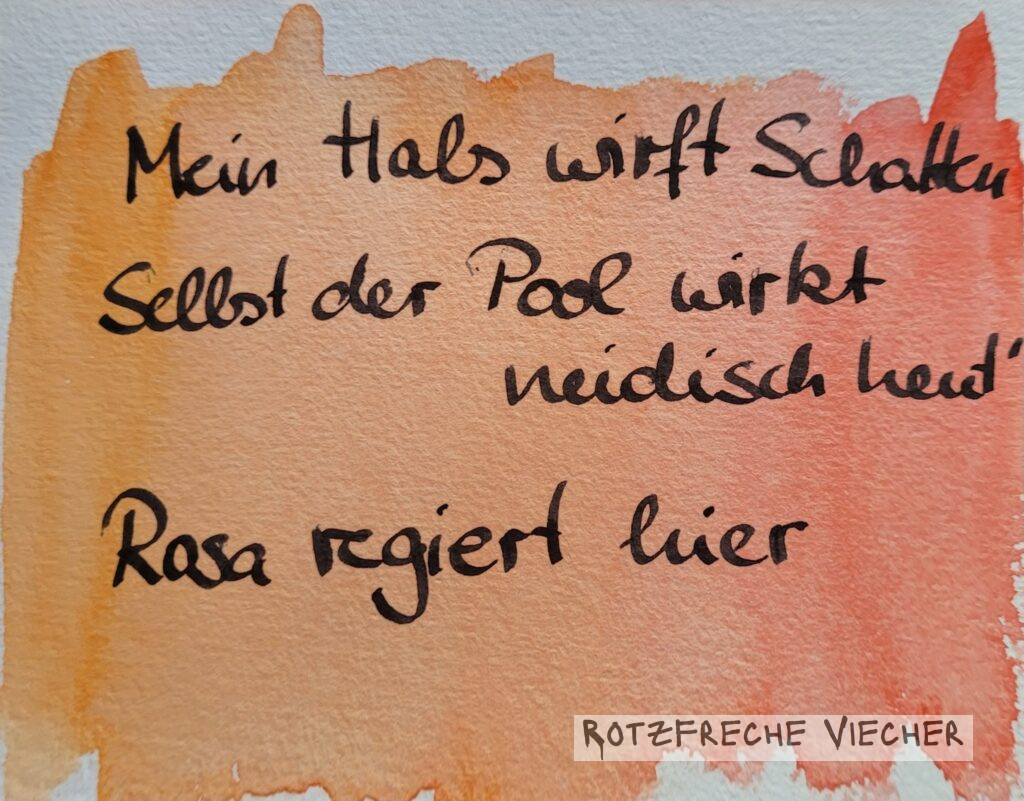 Mein Hals wirft Schatten
Selbst der Pool wirkt
neidisch heut'
Rosa regiert hier
ROTZFRECHE VIECHER